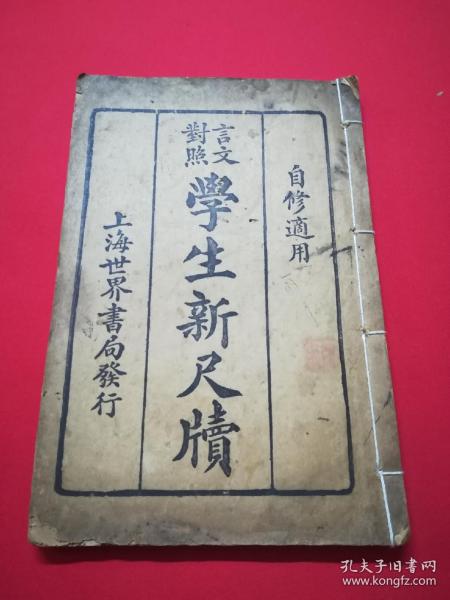 自修適用
言文
對照
學生新尺牘
上海世界書局發行
孔夫子旧书网
www.kongfz.com